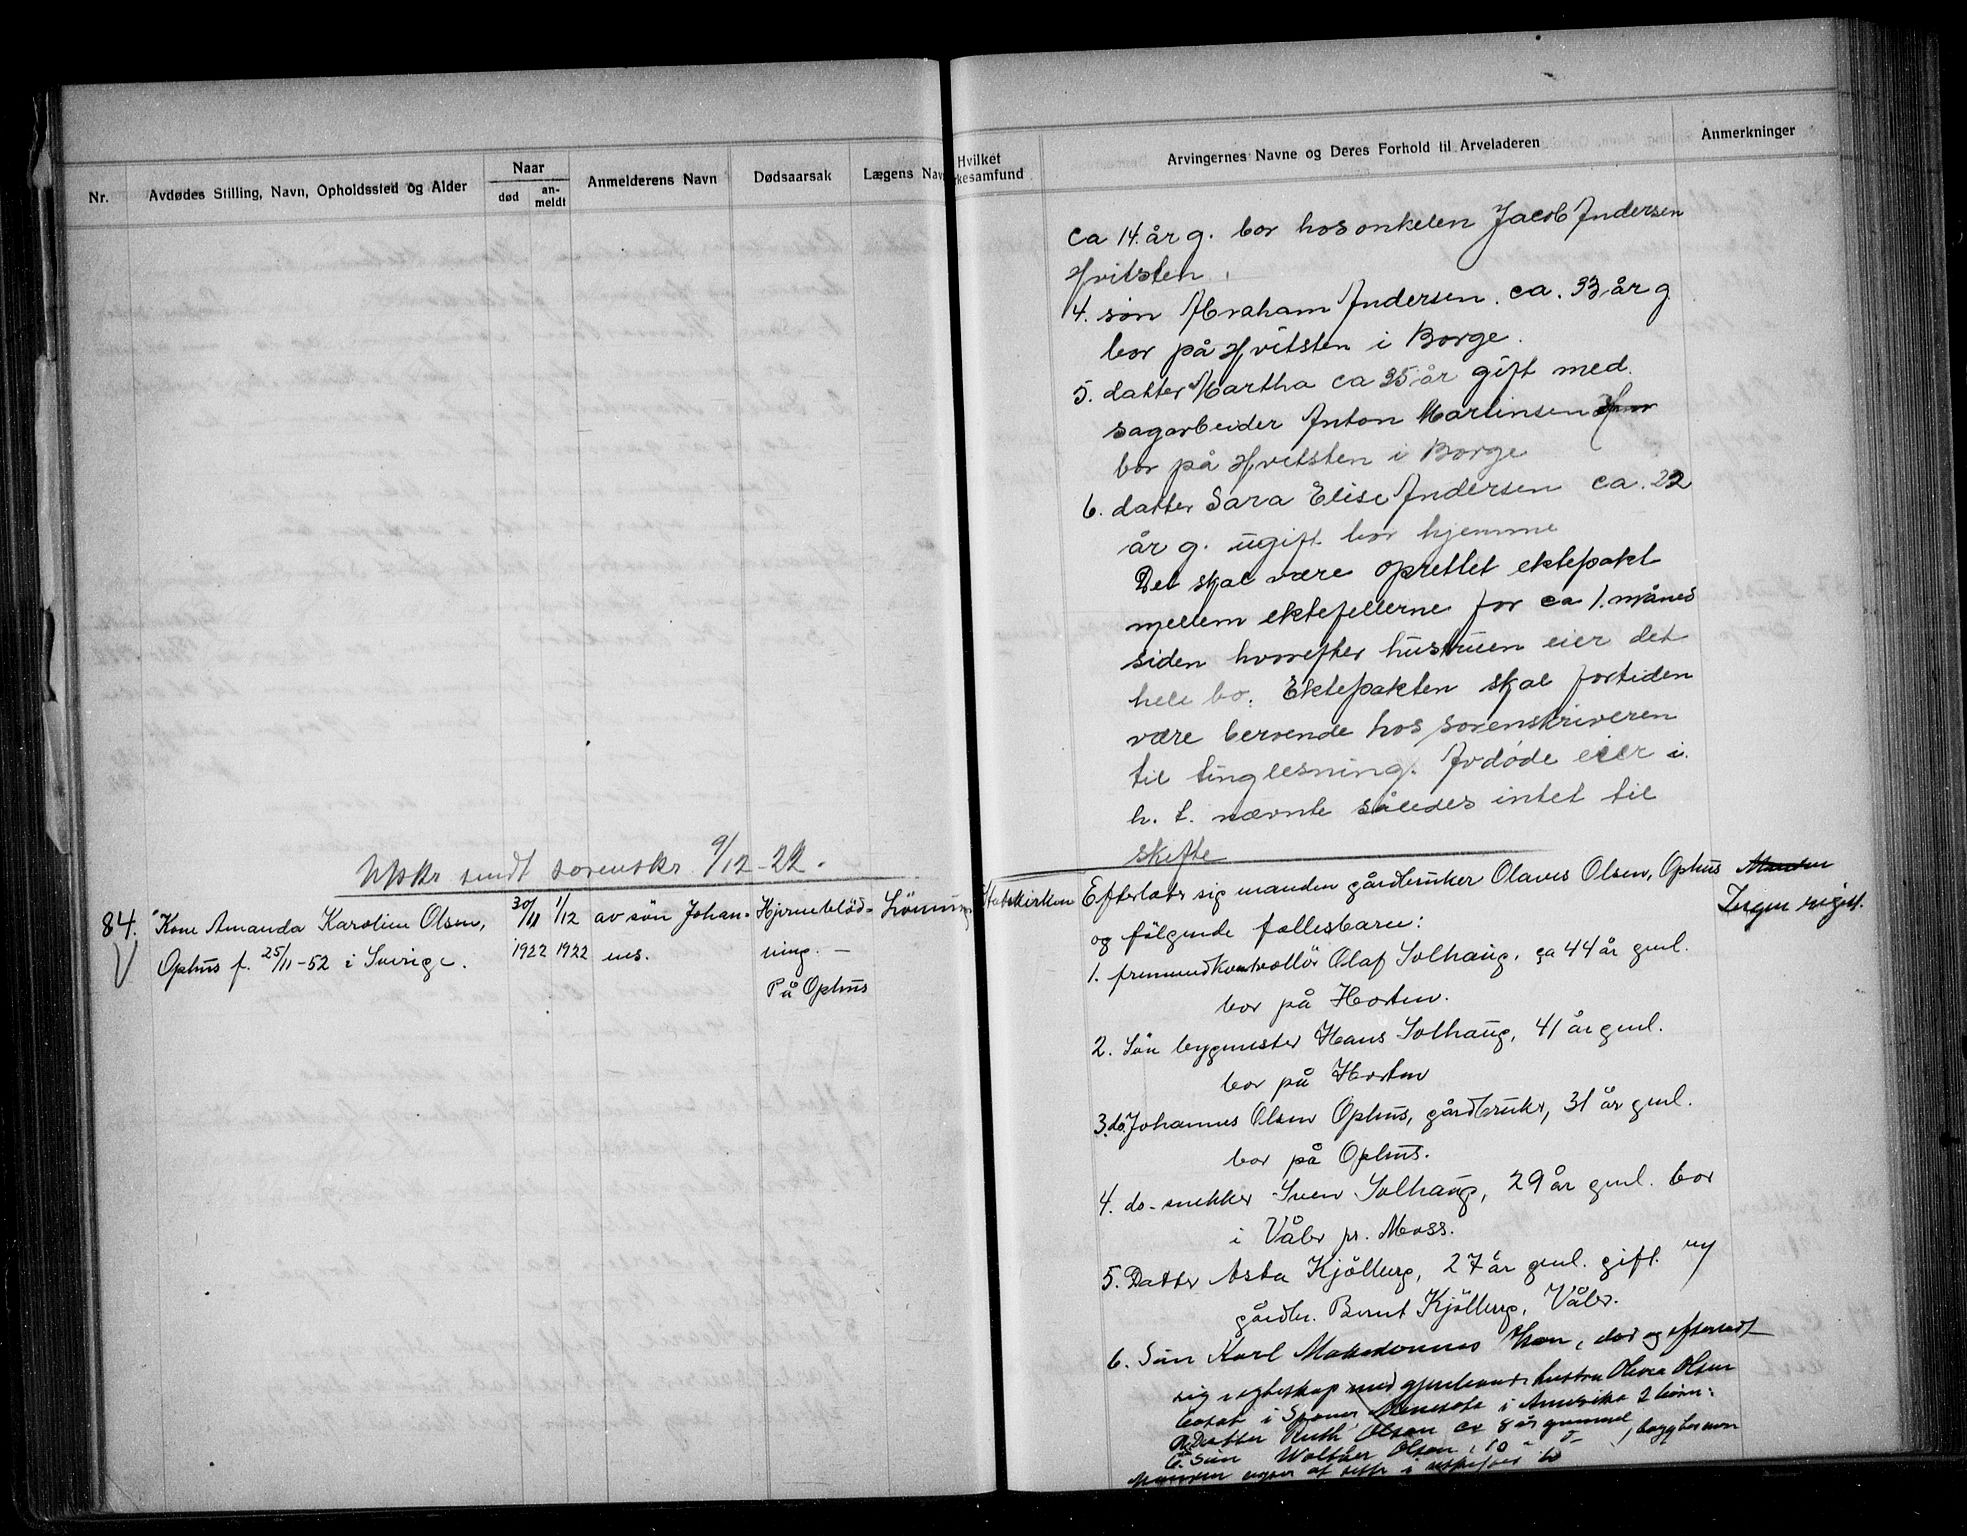 Nr.
Avdødes Stilling, Navn, Opholdssted og Alder
Naar
død
an-
meldt
Anmelderens Navn
Dødsaarsak
Lægens Nav
Utskr sendt sorenskr 9/12-22.
84. Kone Amanda Karoline Olsen,
Ophus f. 25/11-52 i Sverige.
30/11
1922
1/12
1922
av søn Johan-
nes.
Hjerneblød-
ning. —
På Ophus
Hvilket
rkesamfund
Arvingernes Navne og Deres Forhold til Arveladeren
Anmerkninger
ca 14 år g. bor hos onkelen Jacob Andersen
Hvitsten
4. søn Abraham Andersen. ca. 33 år g
bor på Hvitsten i Borge.
5. datter Martha ca 35 år gift med
sagarbeider Anton Martinsen
bor på Hvitsten i Borge
6. datter Sara Elise Andersen ca. 22
år g. ugift bor hjemme
Det skal være oprettet ektepakt
mellem ektefellerne for ca 1. måned
siden hvorefter hustruen eier det
hele bo. Ektepakten skal fortiden
være beroende hos sorenskriveren
til tinglesning. Avdøde eier i.
h. t. nævnte således intet til
skifte
Statskirken
Efterlater sig manden gårdbruker Olaves Olsen, Ophus
Ingen
og følgende fællesbarn:
1. Olaf Solhaug, ca 44 år gml.
bor på Horten.
2. Søn bygmester Hans Solhaug, 41 år gml.
bor på Horten
3. do. Johannes Olsen Ophus, gårdbruker, 31 år gml.
bor på Ophus.
4. do. snekker Sven Solhaug, 29 år gml. bor
i Våler pr. Moss.
5. Datter Asta Kjölberg, 27 år gml. gift m/
gårdbr. Bernt Kjölberg, Våler.
6. Søn Karl
sig i egteskap med gjenlevende hustru Olsen
bosat i i Amerika 2 børn:
a. Datter Ruth Olsen ca 8 år gammel
b. Søn Walther Olsen, 10